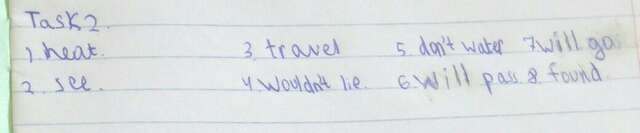 Task 2.
1. heat. 3. travel 5. don't water 7. will go
2. see. 4. wouldn't lie. 6. will pass 8. found